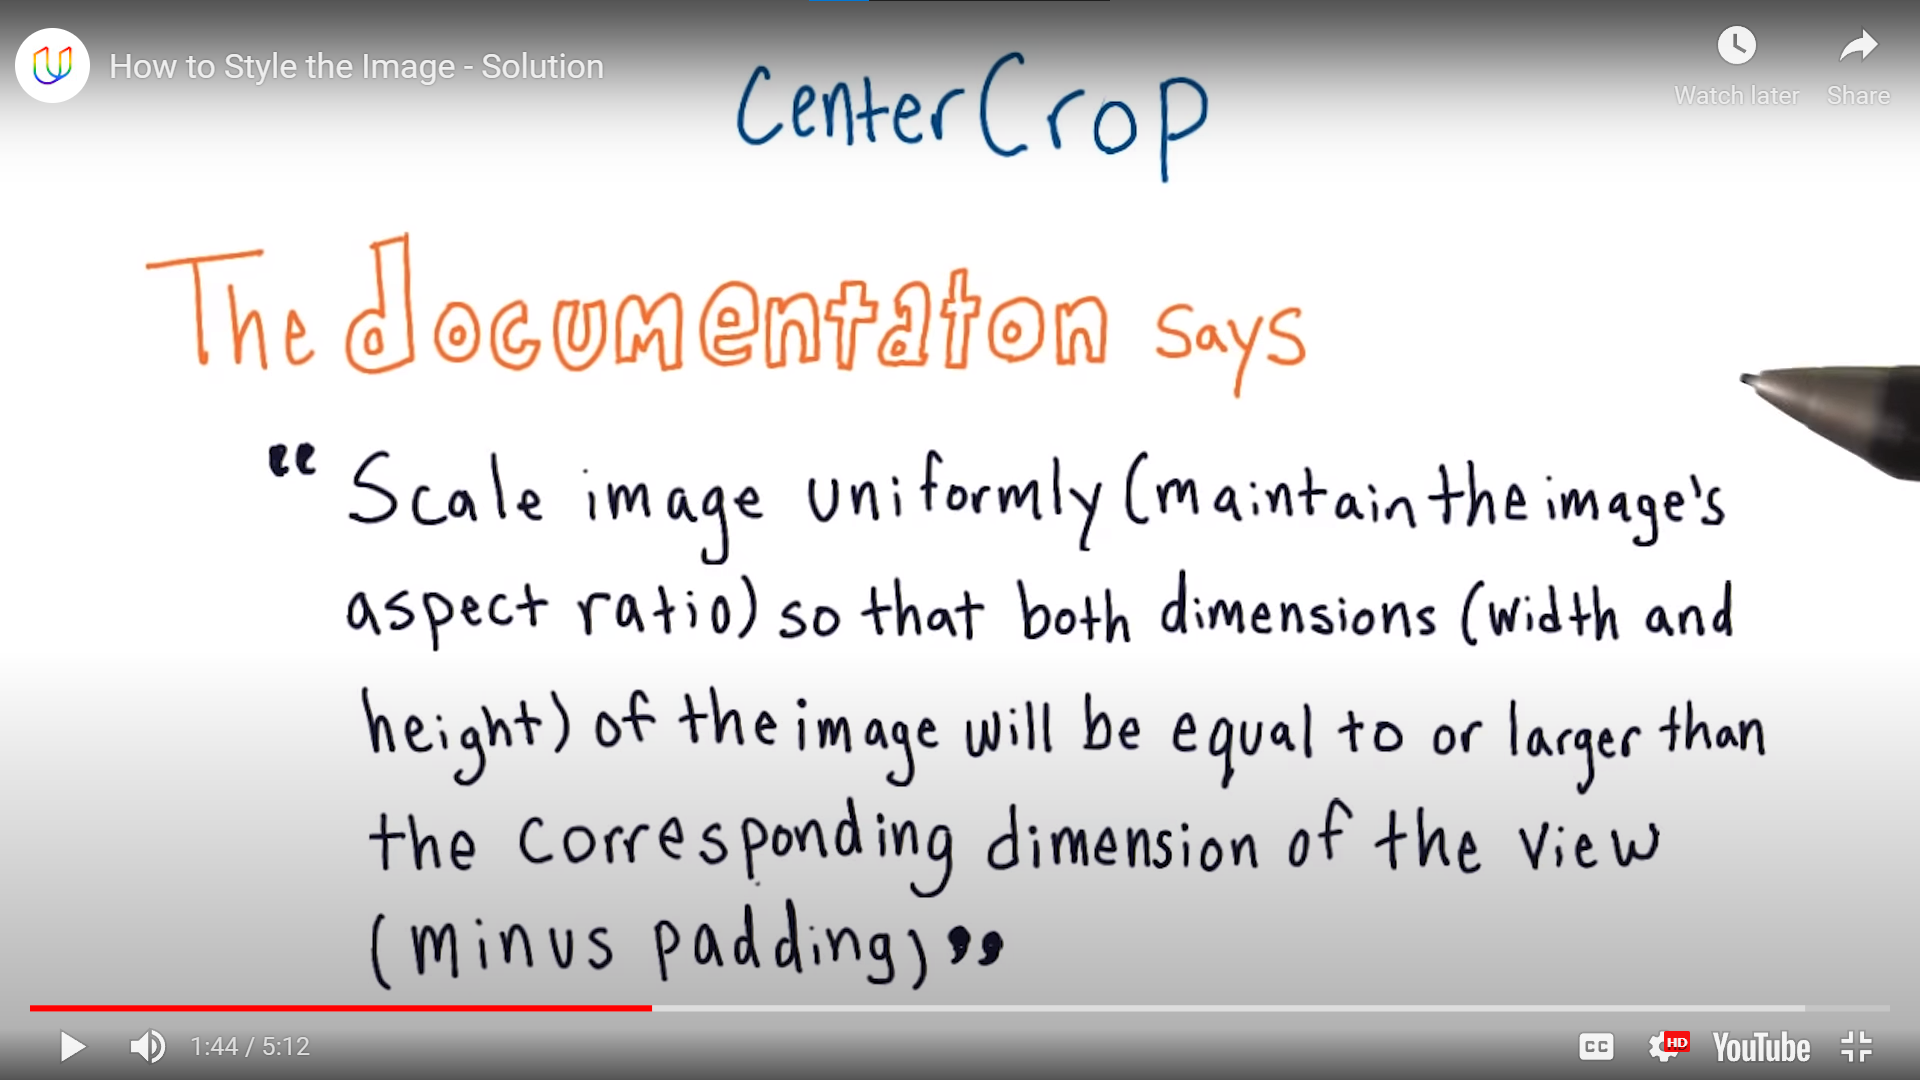 How to Style the Image - Solution
Watch later
Share
CenterCrop
The documentaton says
"Scale image uniformly (maintain the image's
aspect ratio) so that both dimensions (width and
height) of the image will be equal to or larger than
the corresponding dimension of the view
(minus padding)"
1:44 / 5:12
CC
HD
YouTube